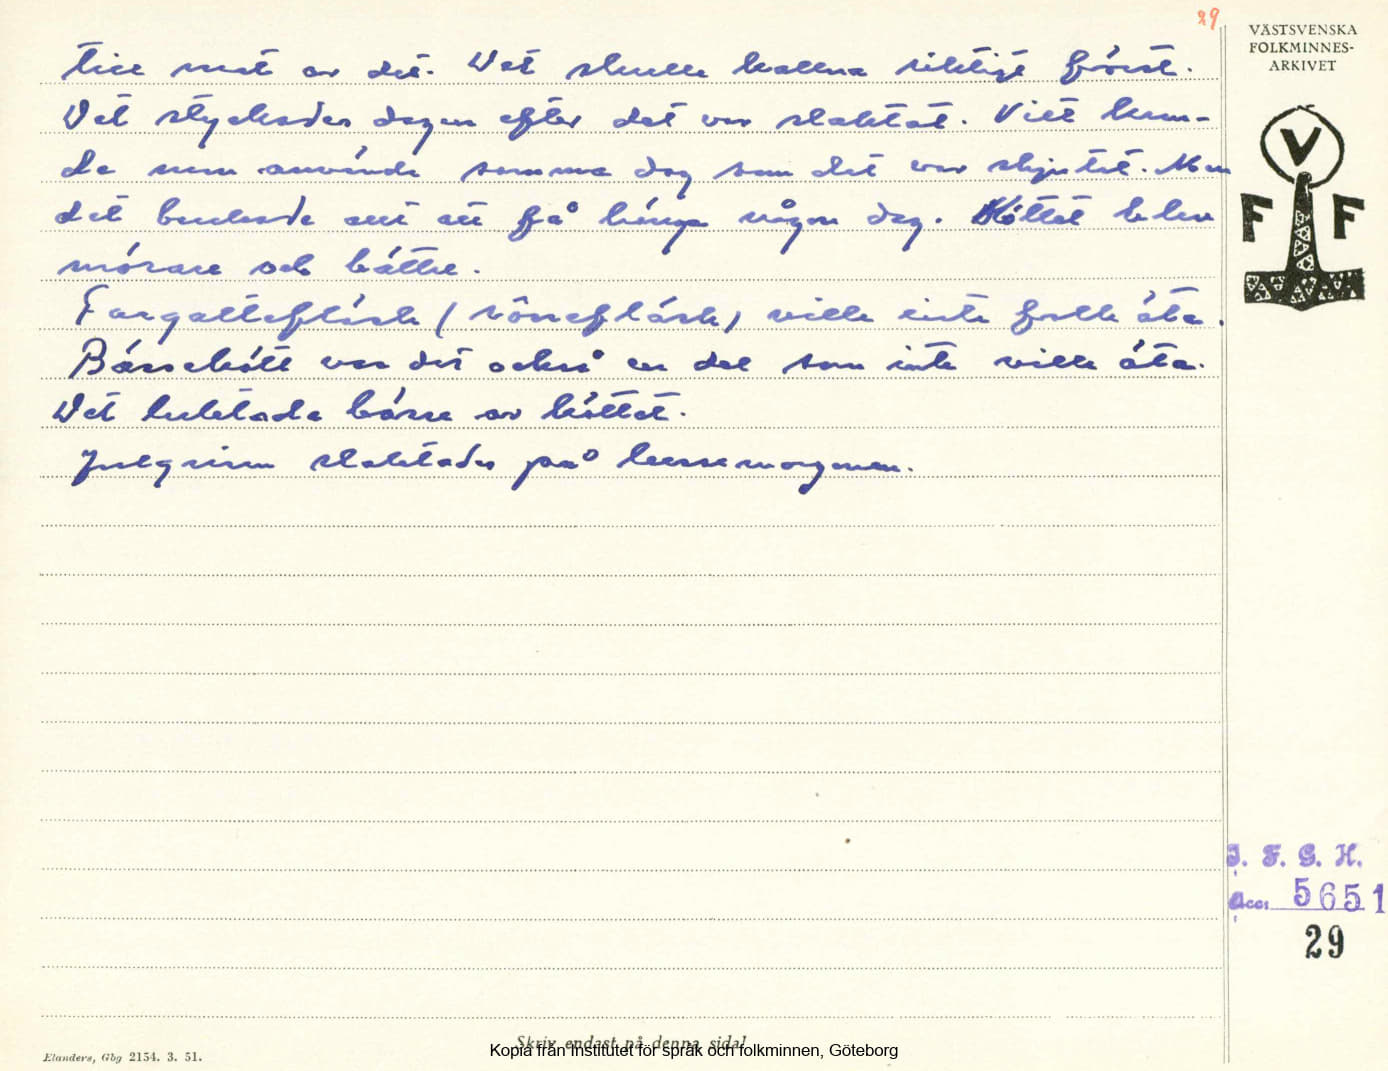 29
VÄSTSVENSKA
FOLKMINNES-
ARKIVET
till mat av det. Det skulle kallna riktigt först.
Det styckades dagen efter det var slaktat. Vilt kun-
de man använda samma dag som det var skjutet. Men
det brukade att få hänga någon dag. Köttet blev
mörare och bättre.
Fargaltefläsk (rönefläsk) ville inte folk äta.
Bässekött var det också en del som inte ville äta.
Det luktade bässe av köttet.
Julgrisen slaktades på lussemorgonen.
V
F F
J. F. G. H.
Acc: 5651
29
Skriv endast på denna sida!
Elanders, Gbg 2154. 3. 51.
Kopia från Institutet för språk och folkminnen, Göteborg